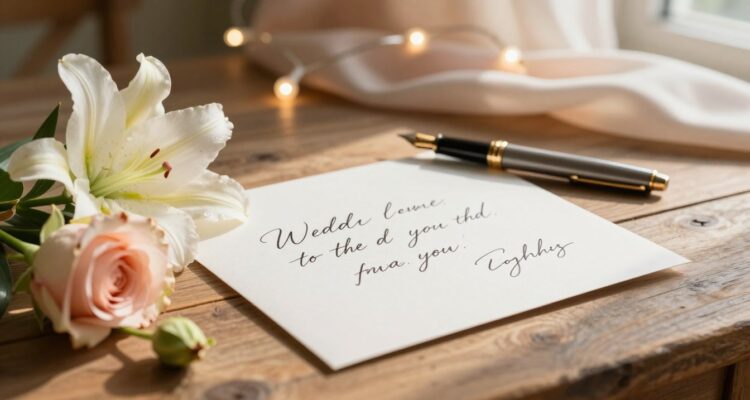 Weddr lowne.
to the d you thd.
fma. you.
Toghhys